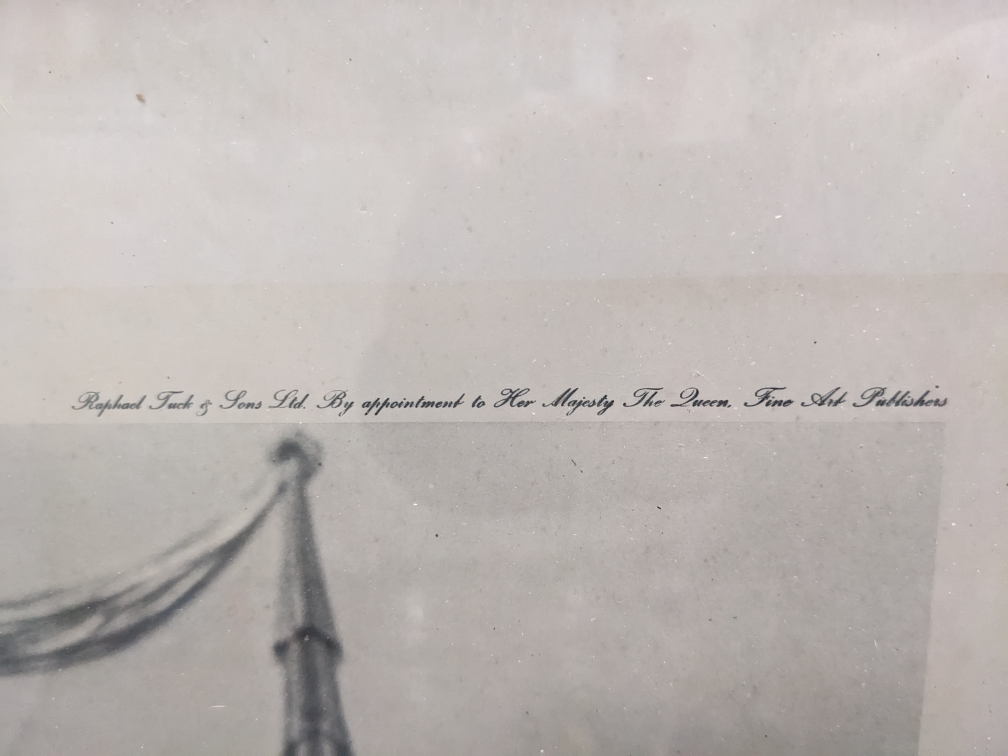 Raphael Tuck & Sons Ltd. By appointment to Her Majesty The Queen, Fine Art Publishers